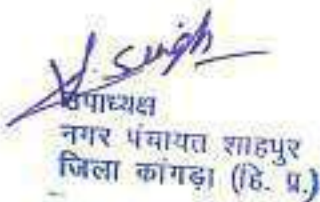 उपाध्यक्ष
नगर पंचायत शाहपुर
जिला कांगड़ा (हि. प्र.)